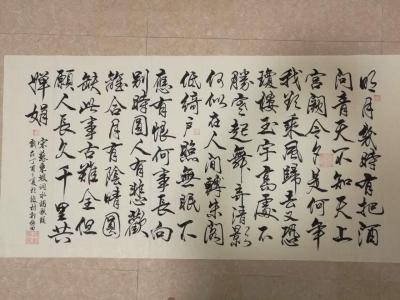 明月幾時有把酒
問青天不知天上
宮闕今夕是何年
我欲乘風歸去又恐
瓊樓玉宇高處不
勝寒起舞弄清影
何似在人間轉朱閣
低綺户照無眠不
應有恨何事長向
别時圓人有悲歡
離合月有陰晴圓
缺此事古難全但
願人長久千里共
嬋娟
宋蘇東坡詞水調歌頭
歲在丁酉夏於